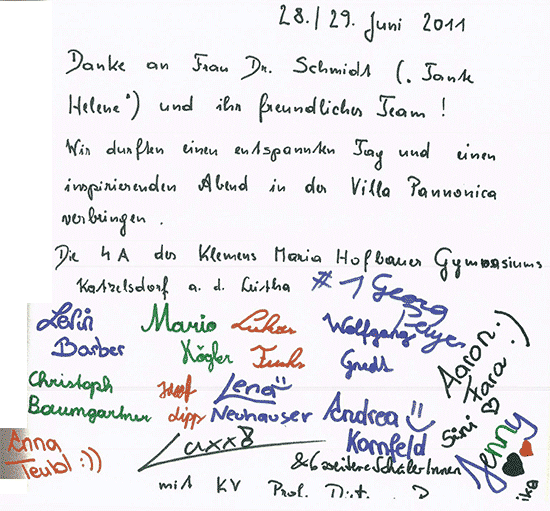 28./29. Juni 2011
Danke an Frau Dr. Schmidt („Tante
Helene") und ihr freundliches Team!
Wir durften einen entspannten Tag und einen
inspirierenden Abend in der Villa Pannonica
verbringen.
Die 4A des Klemens Maria Hofbauer Gymnasiums
Katzelsdorf a. d. Leitha #1 Georg
Mario Lukas Wolfgang
Barber Kögler Fuchs
Christoph Lena
Baumgartner Neuhauser Andrea
Kornfeld
Anna
Teubl :))
Aaron :)
Sini
Jenny
& 6 weitere SchülerInnen
mit KV Prof.